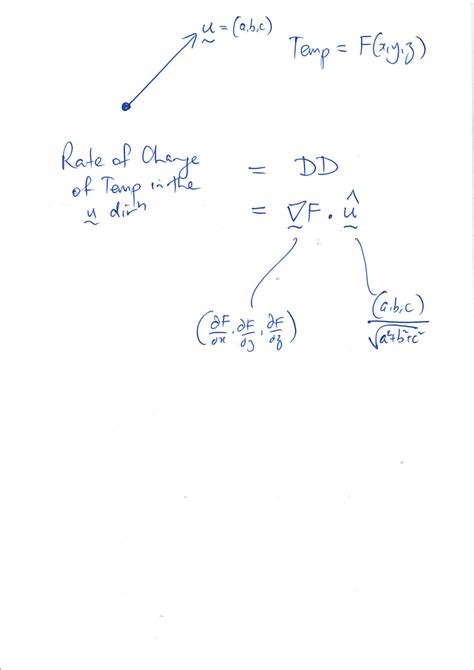 ṵ = (a,b,c)
Temp = F(x,y,z)
Rate of Change
of Temp in the
ṵ dirⁿ
= DD
= ∇̰F · ṵ̂
(∂F/∂x, ∂F/∂y, ∂F/∂z)
(a,b,c)
√a²+b²+c²